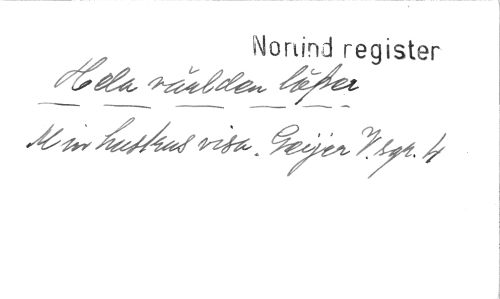 Norlind register
Hela världen löper
Min hustrus visa. Geijer V. sgr. 4